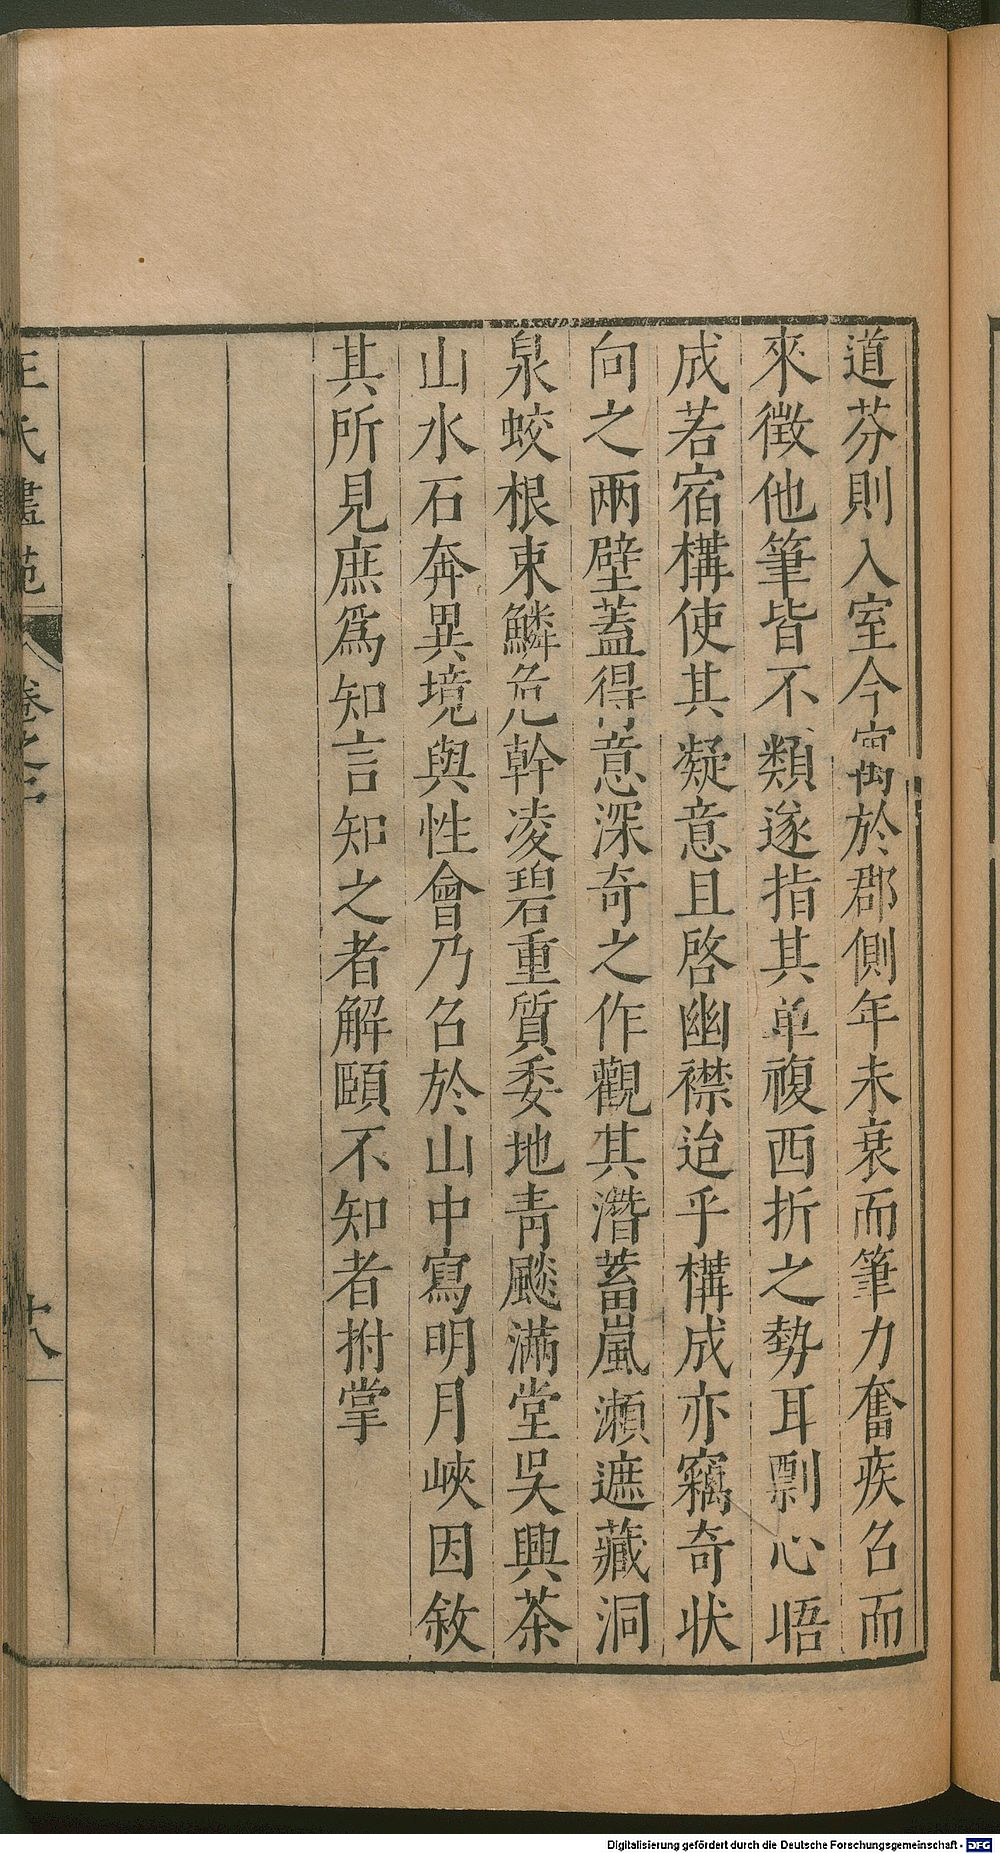 道芬則入室今寓於郡側年未衰而筆力奮疾名而
來徵他筆皆不類遂指其单複西折之勢耳剽心晤
成若宿構使其凝意且啓幽襟迨乎構成亦竊奇状
向之兩壁蓋得意深奇之作觀其潛蓄嵐瀨遮藏洞
泉蛟根束鱗危幹凌碧重質委地青飈滿堂吳興茶
山水石奔異境與性會乃召於山中寫明月峽因敘
其所見庶爲知言知之者解頤不知者拊掌
王氏畫苑 卷之二 廿八
Digitalisierung gefördert durch die Deutsche Forschungsgemeinschaft - DFG